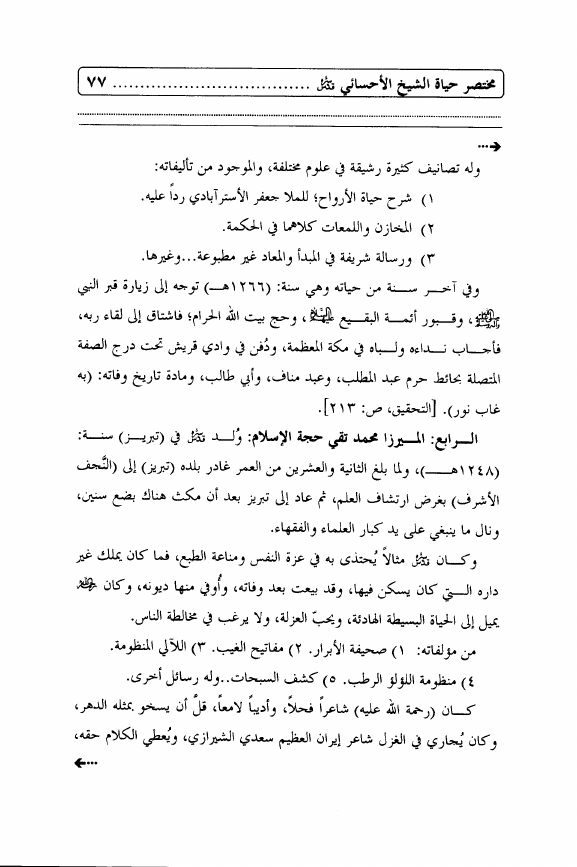 مختصر حياة الشيخ الأحسائي قدس سره .................................... ٧٧
...
وله تصانيف كثيرة رشيقة في علوم مختلفة، والموجود من تأليفاته:
١) شرح حياة الأرواح؛ للملا جعفر الأسترآبادي رداً عليه.
٢) المخازن واللمعات كلاهما في الحكمة.
٣) ورسالة شريفة في المبدأ والمعاد غير مطبوعة...وغيرها.
وفي آخر سنة من حياته وهي سنة: (١٢٦٦هـ) توجه إلى زيارة قبر النبي
، وقبور أئمة البقيع ، وحج بيت الله الحرام؛ فاشتاق إلى لقاء ربه،
فأجاب نداءه ولباه في مكة المعظمة، ودُفن في وادي قريش تحت درج الصفة
المتصلة بحائط حرم عبد المطلب، وعبد مناف، وأبي طالب، ومادة تاريخ وفاته: (به
غاب نور). [التحقيق، ص: ٢١٣].
الرابع: الميرزا محمد تقي حجة الإسلام: وُلد قدس سره في (تبريز) سنة:
(١٢٤٨هـ)، ولما بلغ الثانية والعشرين من العمر غادر بلده (تبريز) إلى (النَّجف
الأشرف) بغرض ارتشاف العلم، ثم عاد إلى تبريز بعد أن مكث هناك بضع سنين،
ونال ما ينبغي على يد كبار العلماء والفقهاء.
وكان قدس سره مثالاً يُحتذى به في عزة النفس ومناعة الطبع، فما كان يملك غير
داره التي كان يسكن فيها، وقد بيعت بعد وفاته، وأُوفي منها ديونه، وكان
يميل إلى الحياة البسيطة الهادئة، ويحبّ العزلة، ولا يرغب في مخالطة الناس.
من مؤلفاته: ١) صحيفة الأبرار. ٢) مفاتيح الغيب. ٣) اللآلي المنظومة.
٤) منظومة اللؤلؤ الرطب. ٥) كشف السبحات..وله رسائل أخرى.
كان (رحمة الله عليه) شاعراً فحلاً، وأديباً لامعاً، قلَّ أن يسخو بمثله الدهر،
وكان يُجاري في الغزل شاعر إيران العظيم سعدي الشيرازي، ويُعطي الكلام حقه،
...